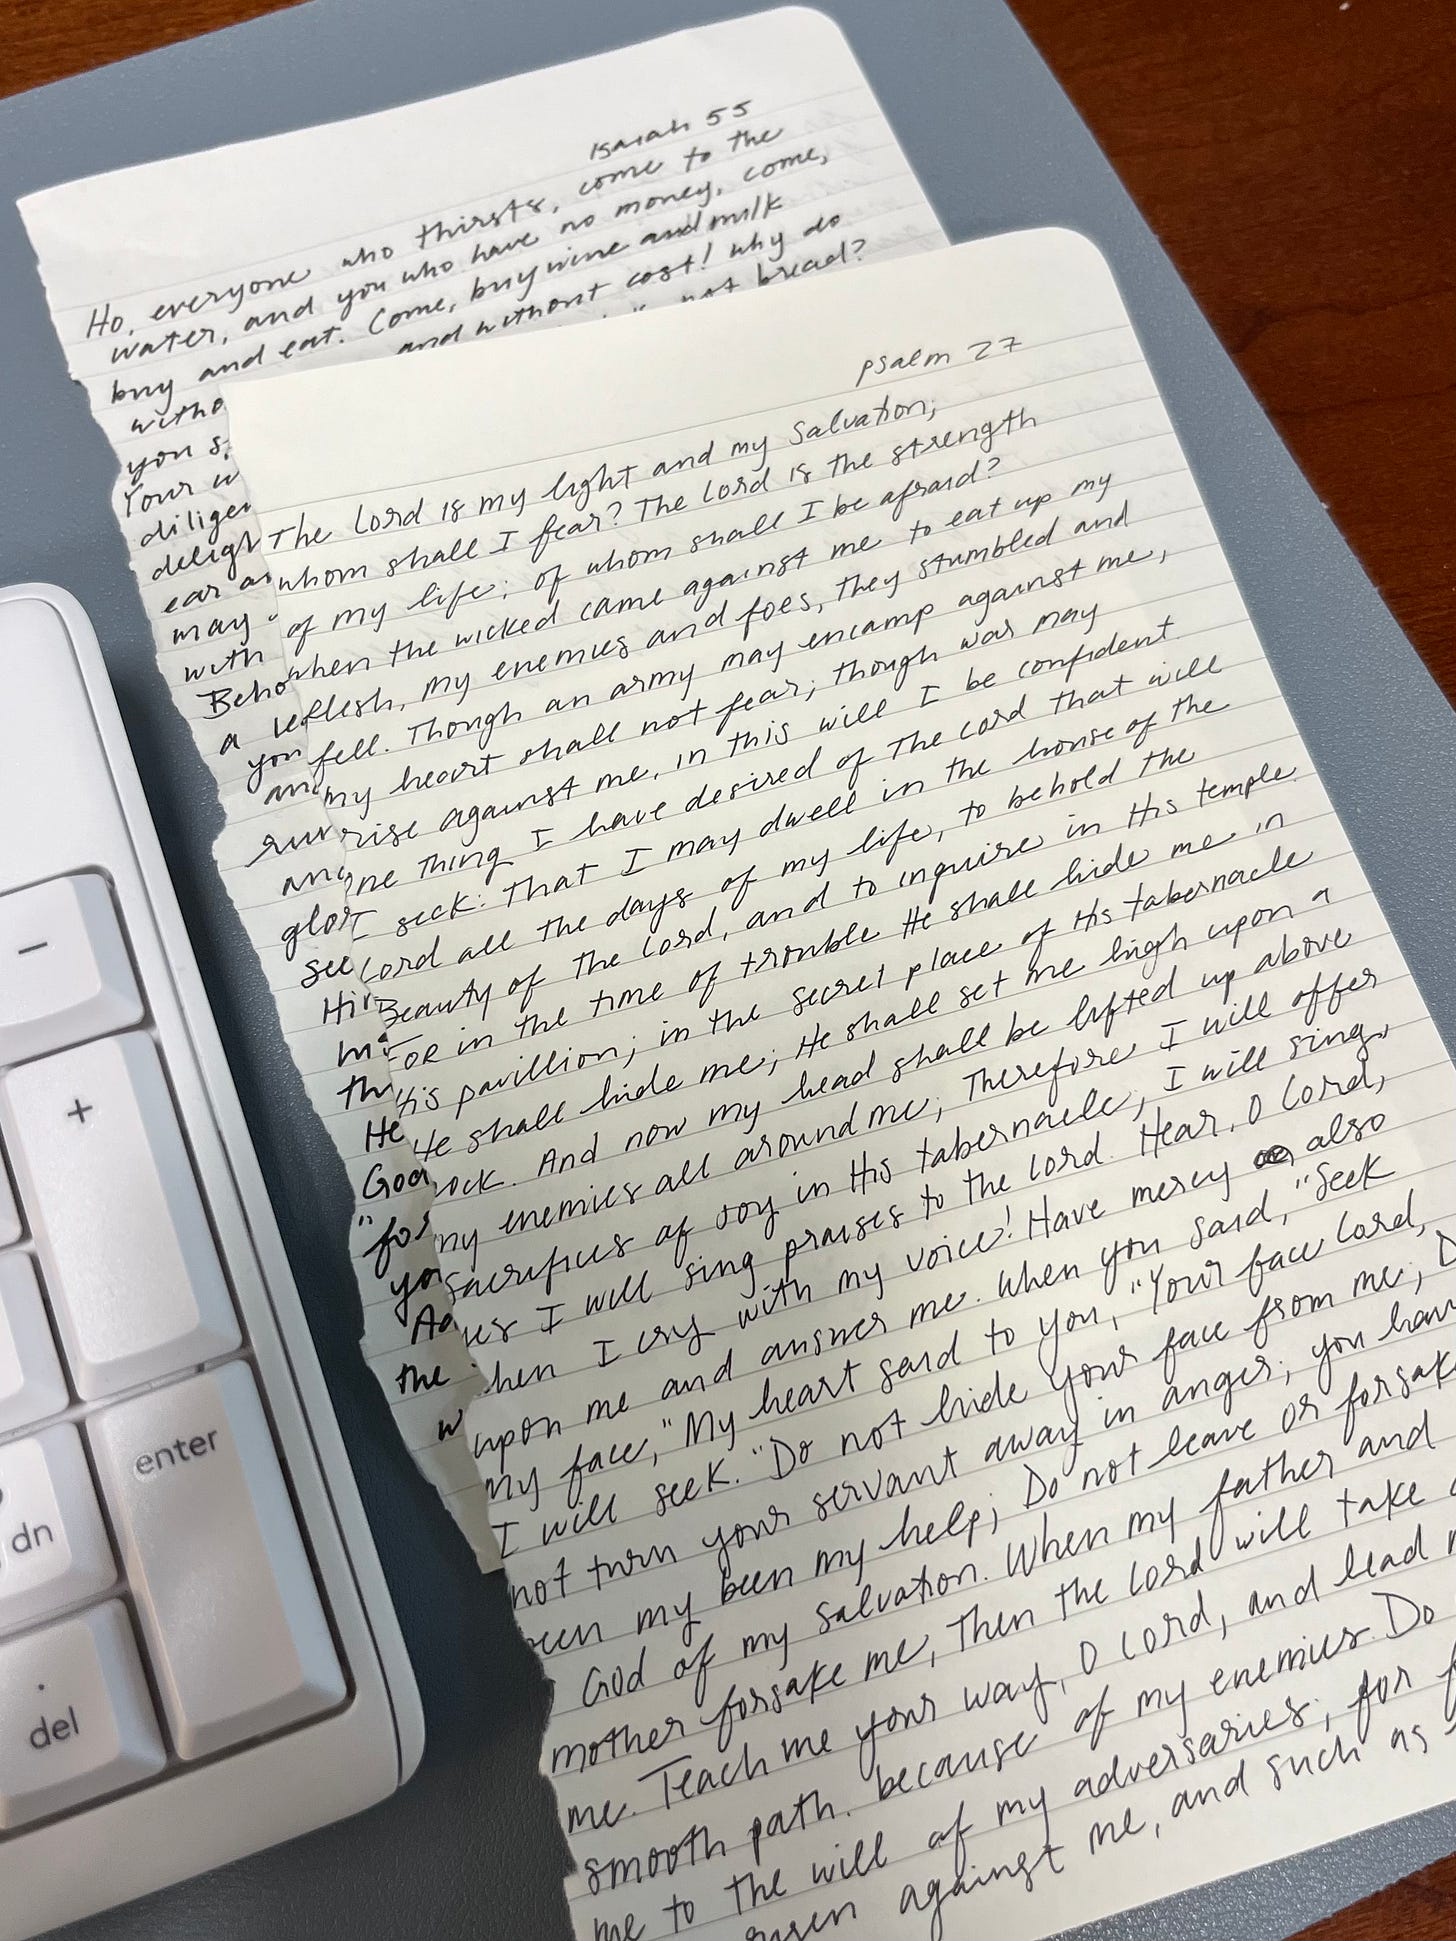 Isaiah 55
Ho, everyone who thirsts, come to the
water, and you who have no money, come,
buy and eat. Come, buy wine and milk
witho and without cost! Why do
you s not bread?
Your w
diligen
deligh
ear a
may
with
Beho
a le
you
an
sur
and
glor
see
Hi
m
th
He
God
"for
you
Ad
the
w
psalm 27
The Lord is my light and my Salvation;
whom shall I fear? The Lord is the strength
of my life; of whom shall I be afraid?
When the wicked came against me to eat up my
flesh, my enemies and foes, they stumbled and
fell. Though an army may encamp against me,
my heart shall not fear; though war may
rise against me, in this will I be confident.
One Thing I have desired of The Lord that will
I seek: That I may dwell in the house of the
Lord all the days of my life, to behold the
Beauty of the Lord, and to inquire in His temple.
For in the time of trouble He shall hide me in
His pavillion; in the secret place of His tabernacle
He shall hide me; He shall set me high upon a
rock. And now my head shall be lifted up above
my enemies all around me; Therefore I will offer
sacrifices of joy in His tabernacle; I will sing,
yes I will sing praises to the Lord. Hear, O Lord,
when I cry with my voice! Have mercy also
upon me and answer me. When you said, "Seek
my face," My heart said to you, "Your face Lord,
I will seek." Do not hide your face from me; D
not turn your servant away in anger; you have
been my been my help; Do not leave or forsak
God of my salvation. When my father and
mother forsake me, Then the Lord will take
me. Teach me your way, O Lord, and lead
smooth path. because of my enemies. Do
me to the will of my adversaries; for
risen against me, and such as
-
+
enter
dn
.
del